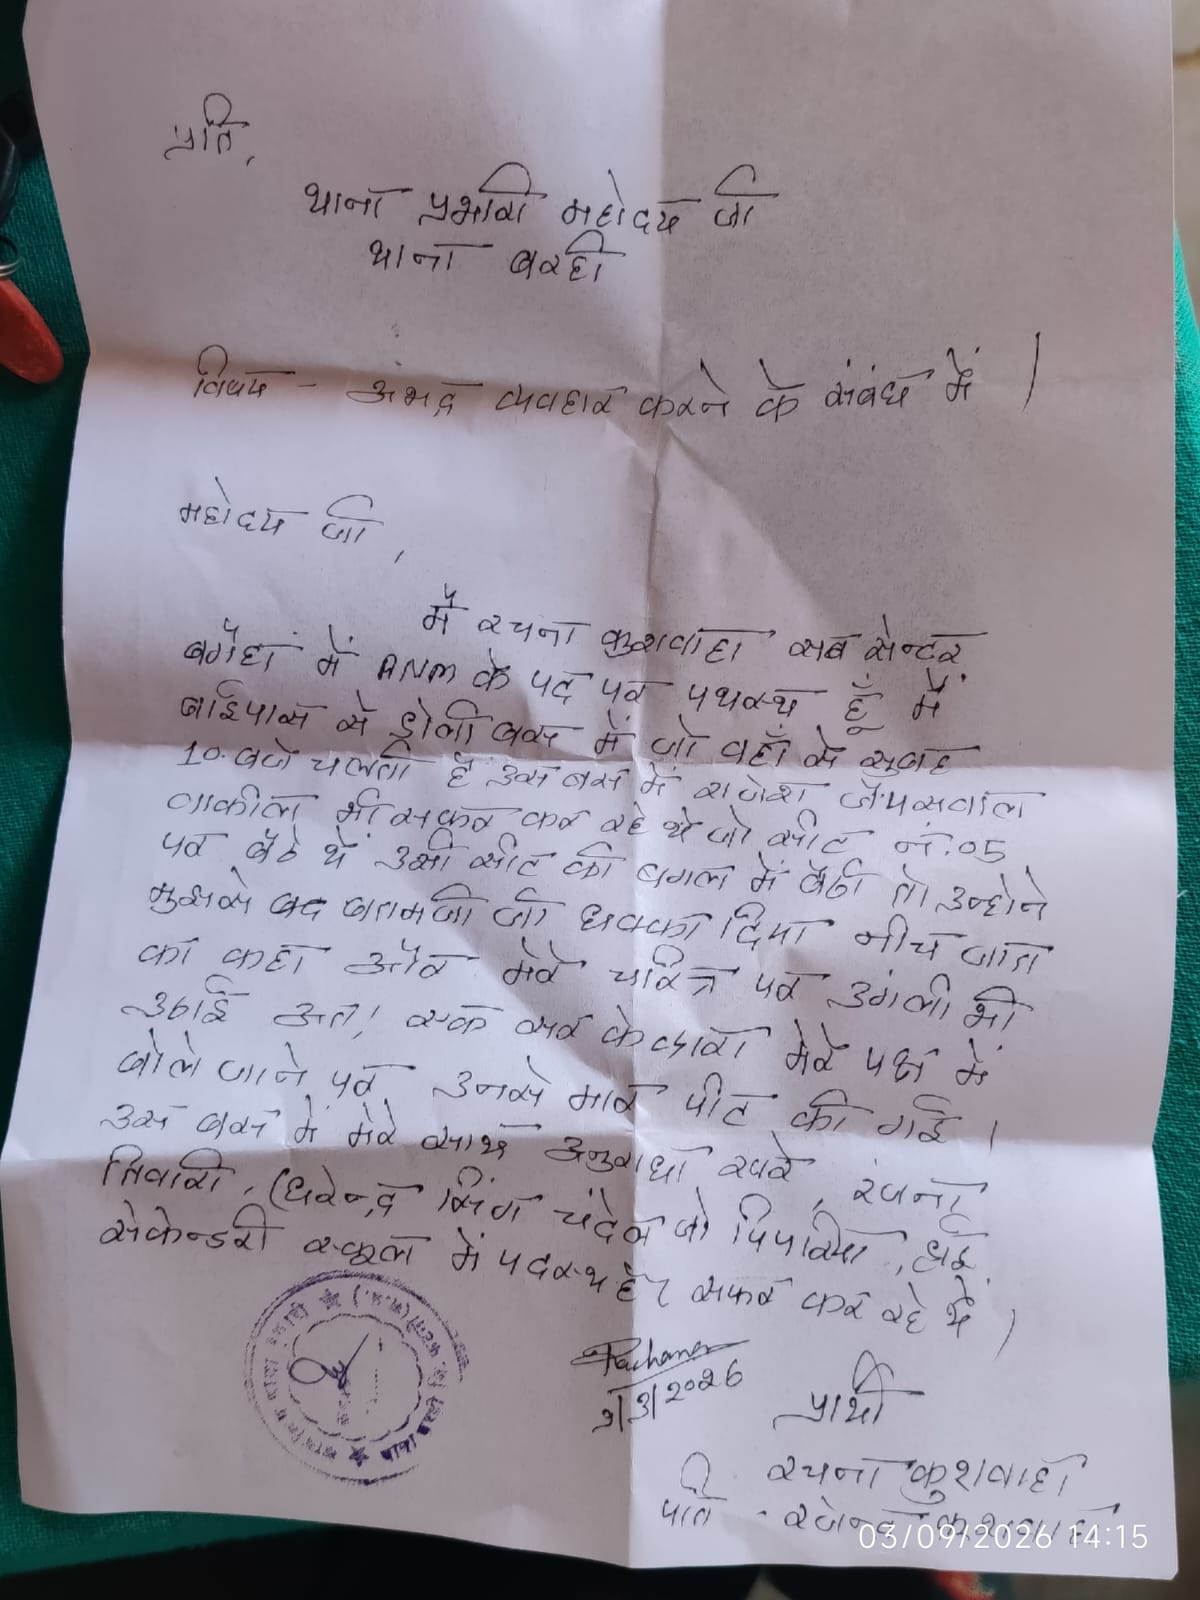 प्रति,
थाना प्रभारी महोदय जी
थाना बरही
विषय - अभद्र व्यवहार करने के संबंध में ।
महोदय जी,
मैं रचना कुशवाहा सब सेन्टर
बगैहा में ANM के पद पर पदस्थ हूँ मैं
बाईपास से डोली बस में जो वहाँ से सुबह
10.बजे चलती है उस बस में राजेश जैयसवाल
वाकील भी सफर कर रहे थे जो सीट नं.05
पर बैठे थे उसी सीट की बगल में बैठी तो उन्होने
मुझसे बद बतमजी की धक्का दिया नीच जात
का कहा और मेरे चरित्र पर उंगली भी
उठाई अत! एक सर के द्वारा मेरे पक्ष में
बोले जाने पर उनसे मार पीट की गई ।
उस बस में मेरे साथ अनुराधा खरे, रंजना
तिवारी, (धीरेन्द्र सिंग चंदेल जो पिपरिया, हाई
सेकेन्डरी स्कूल में पदस्थ है) सफर कर रहे थे ।
Rachana
9/3/2026
प्रार्थी
रचना कुशवाहा
पति - राजेन्द्र कुशवाहा
03/09/2026 14:15